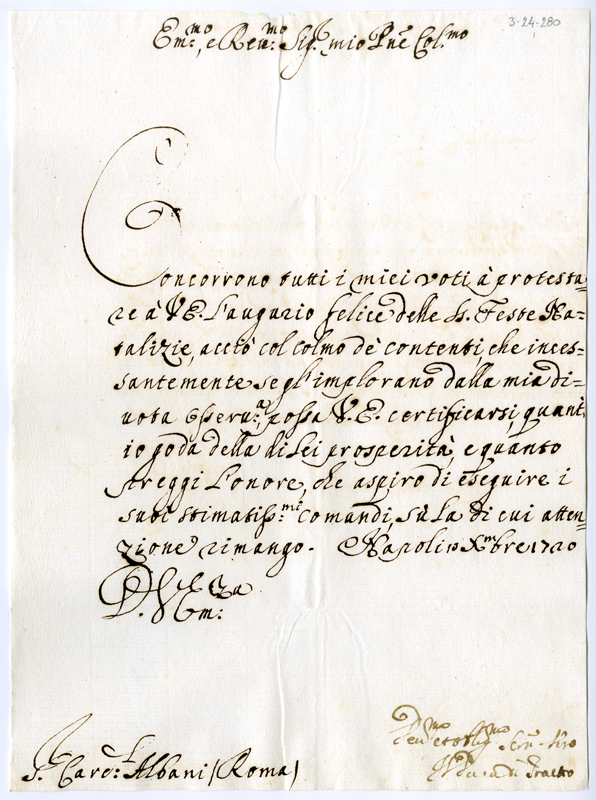 3-24,280
Em:mo, e Ren:mo Sig.r mio Pñe Col.mo
Concorrono tutti i miei voti à protesta=
re à V.E. l'augurio felice delle Ss. Feste Na=
talizie, acciò col colmo de contenti, che inces=
santemente se gl'implorano dalla mia di=
uota osseru:a, possa V.E. certificarsi, quant'
io goda della di Lei prosperità, e quanto
preggi l'onore, che aspiro di eseguire i
suoi stimatiss:mi comandi, sù la di cui atten=
zione rimango. Napoli Xmbre 1720
D. V. Em:za
S.r Card:l Albani (Roma)
Deu:mo et obblig:mo Seru.re
Il Duca di